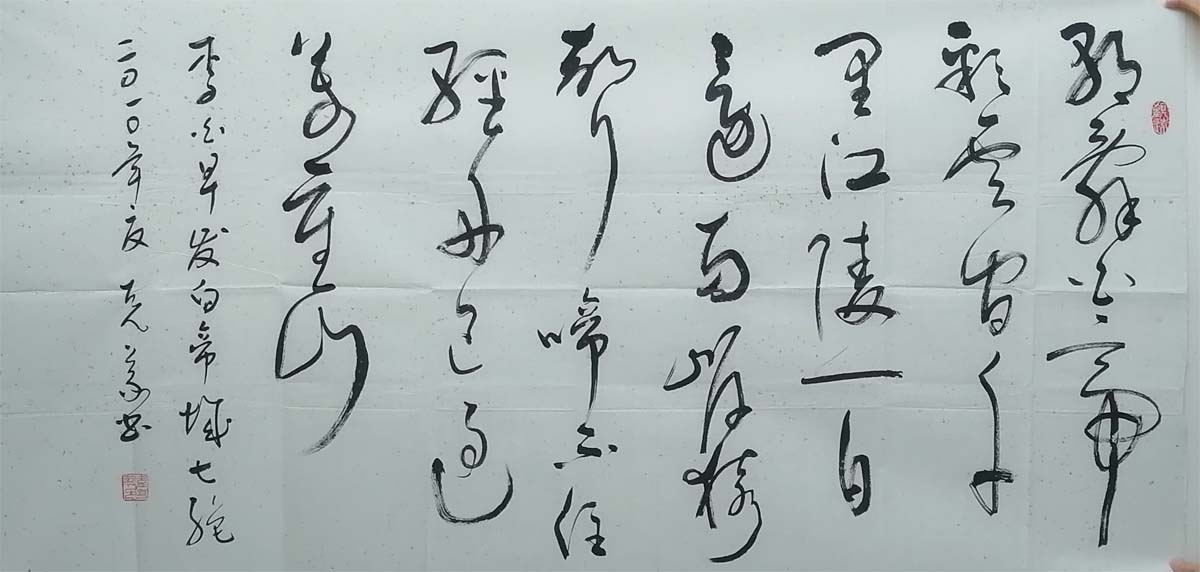 朝辭白帝
彩云间千
里江陵一日
還两岸猿
聲啼不住
輕舟已過
萬重山
李白早发白帝城七绝
二〇一〇年夏 克義书